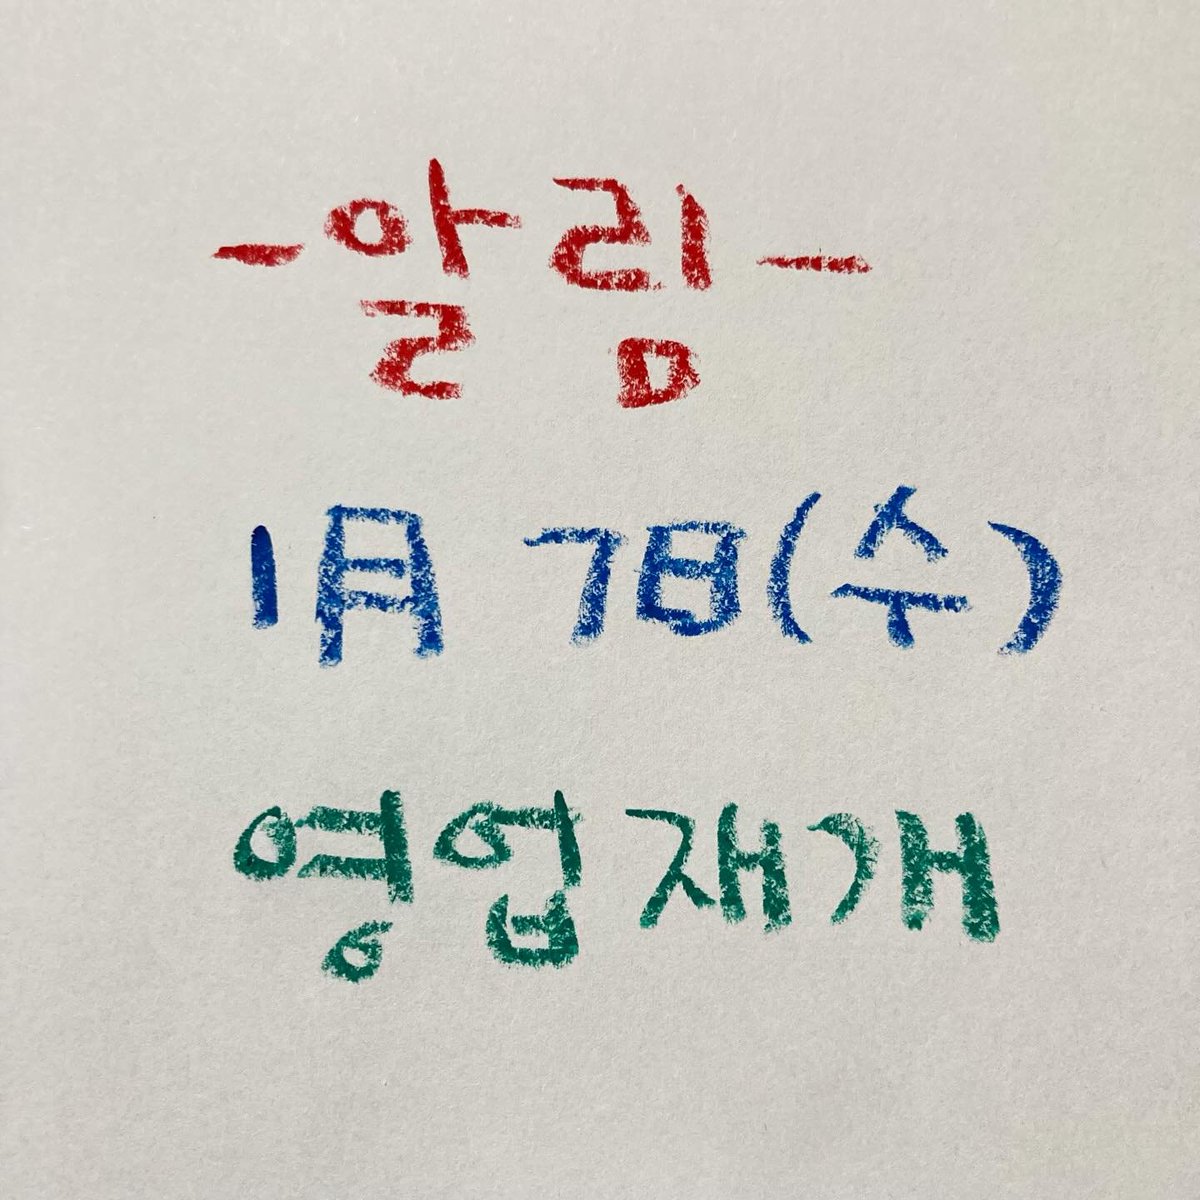 -알림-
1月 7日(수)
영업재개